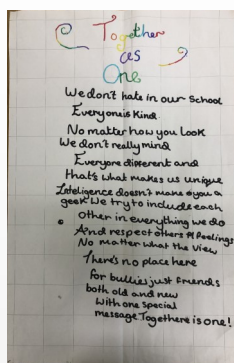 Together
as
One
We don't hate in our School
Everyone is Kind
No matter how you look
We don't really mind
Everyone different and
that's what makes us unique
Inteligence doesn't make you a
geek We try to include each
other in everything we do
And respect others feelings
No matter what the view
There's no place here
for bullies just friends
both old and new
With one special
message Togethere is one!